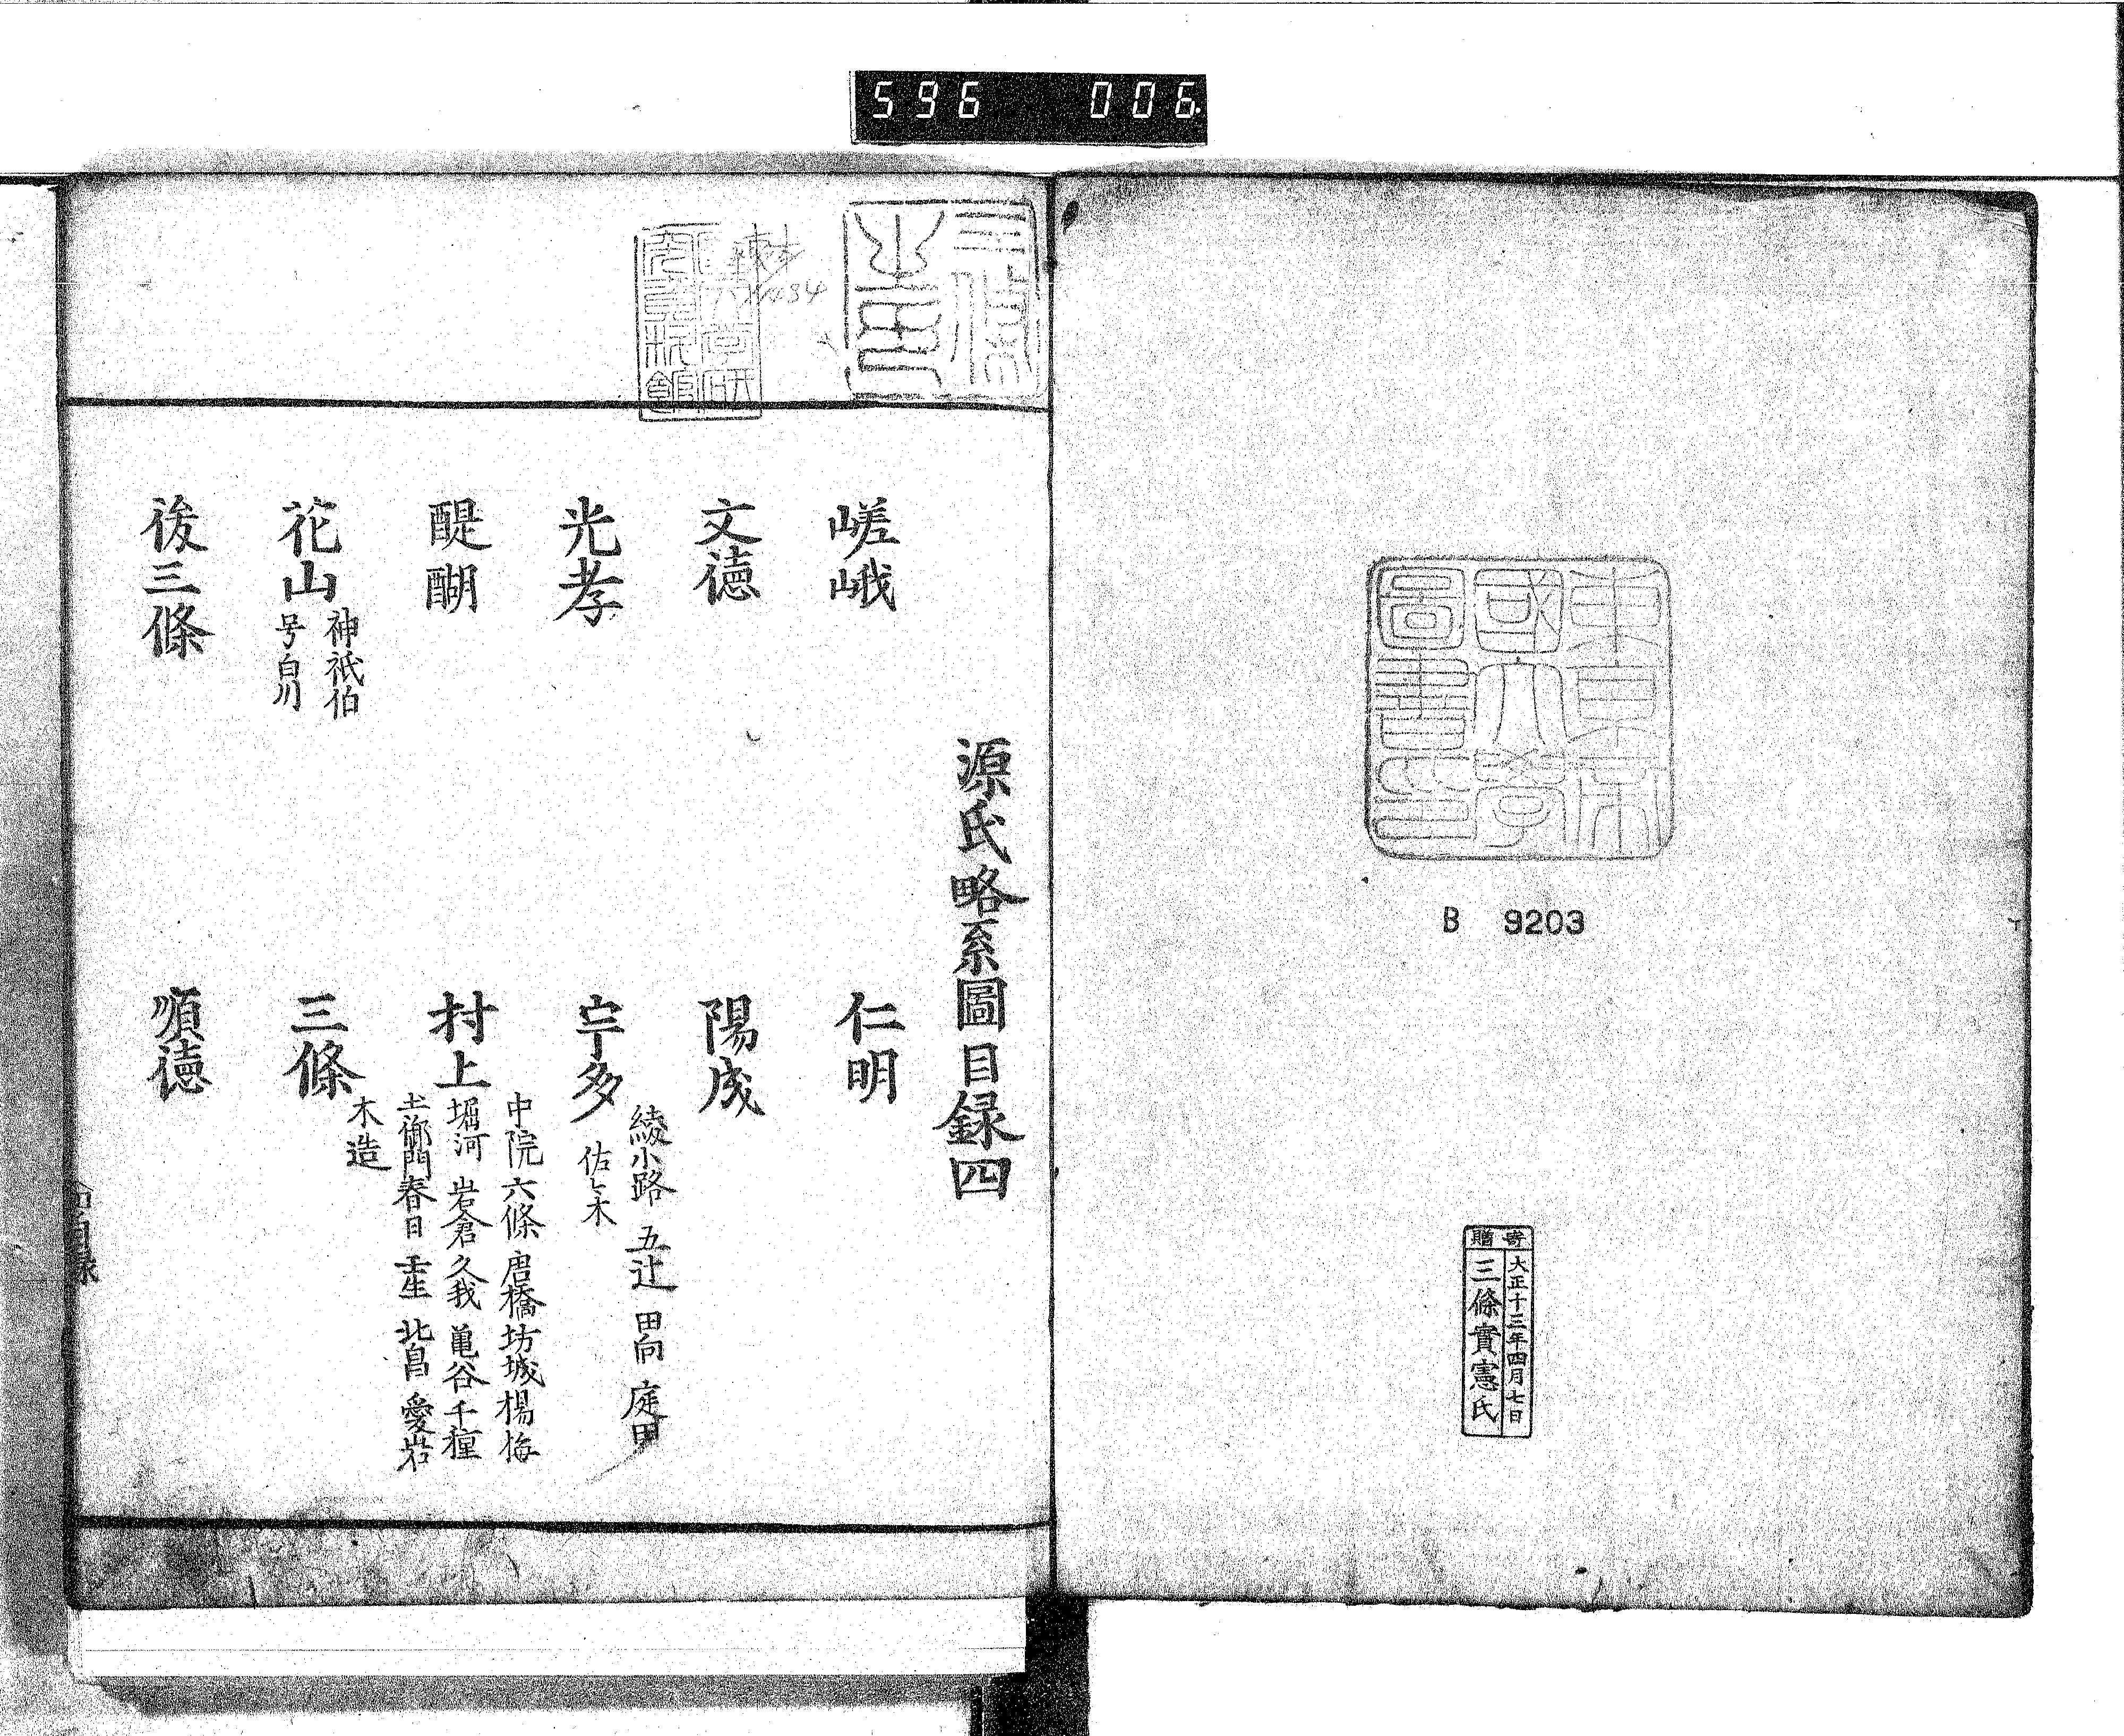 596 006
東京帝
國大學
圖書印
B 9203
寄贈
大正十三年四月七日
三條實憲氏
源氏略系圖目録四
嵯峨 仁明
文徳 陽成
光孝 宇多 綾小路 五辻 田向 庭田
佐々木
醍醐 村上 中院 六條 唐橋 坊城 楊梅
堀河 岩倉 久我 亀谷 千種
土御門 春日 壬生 北畠 愛宕
木造
花山 神祇伯
号白川
三條
後三條 順徳